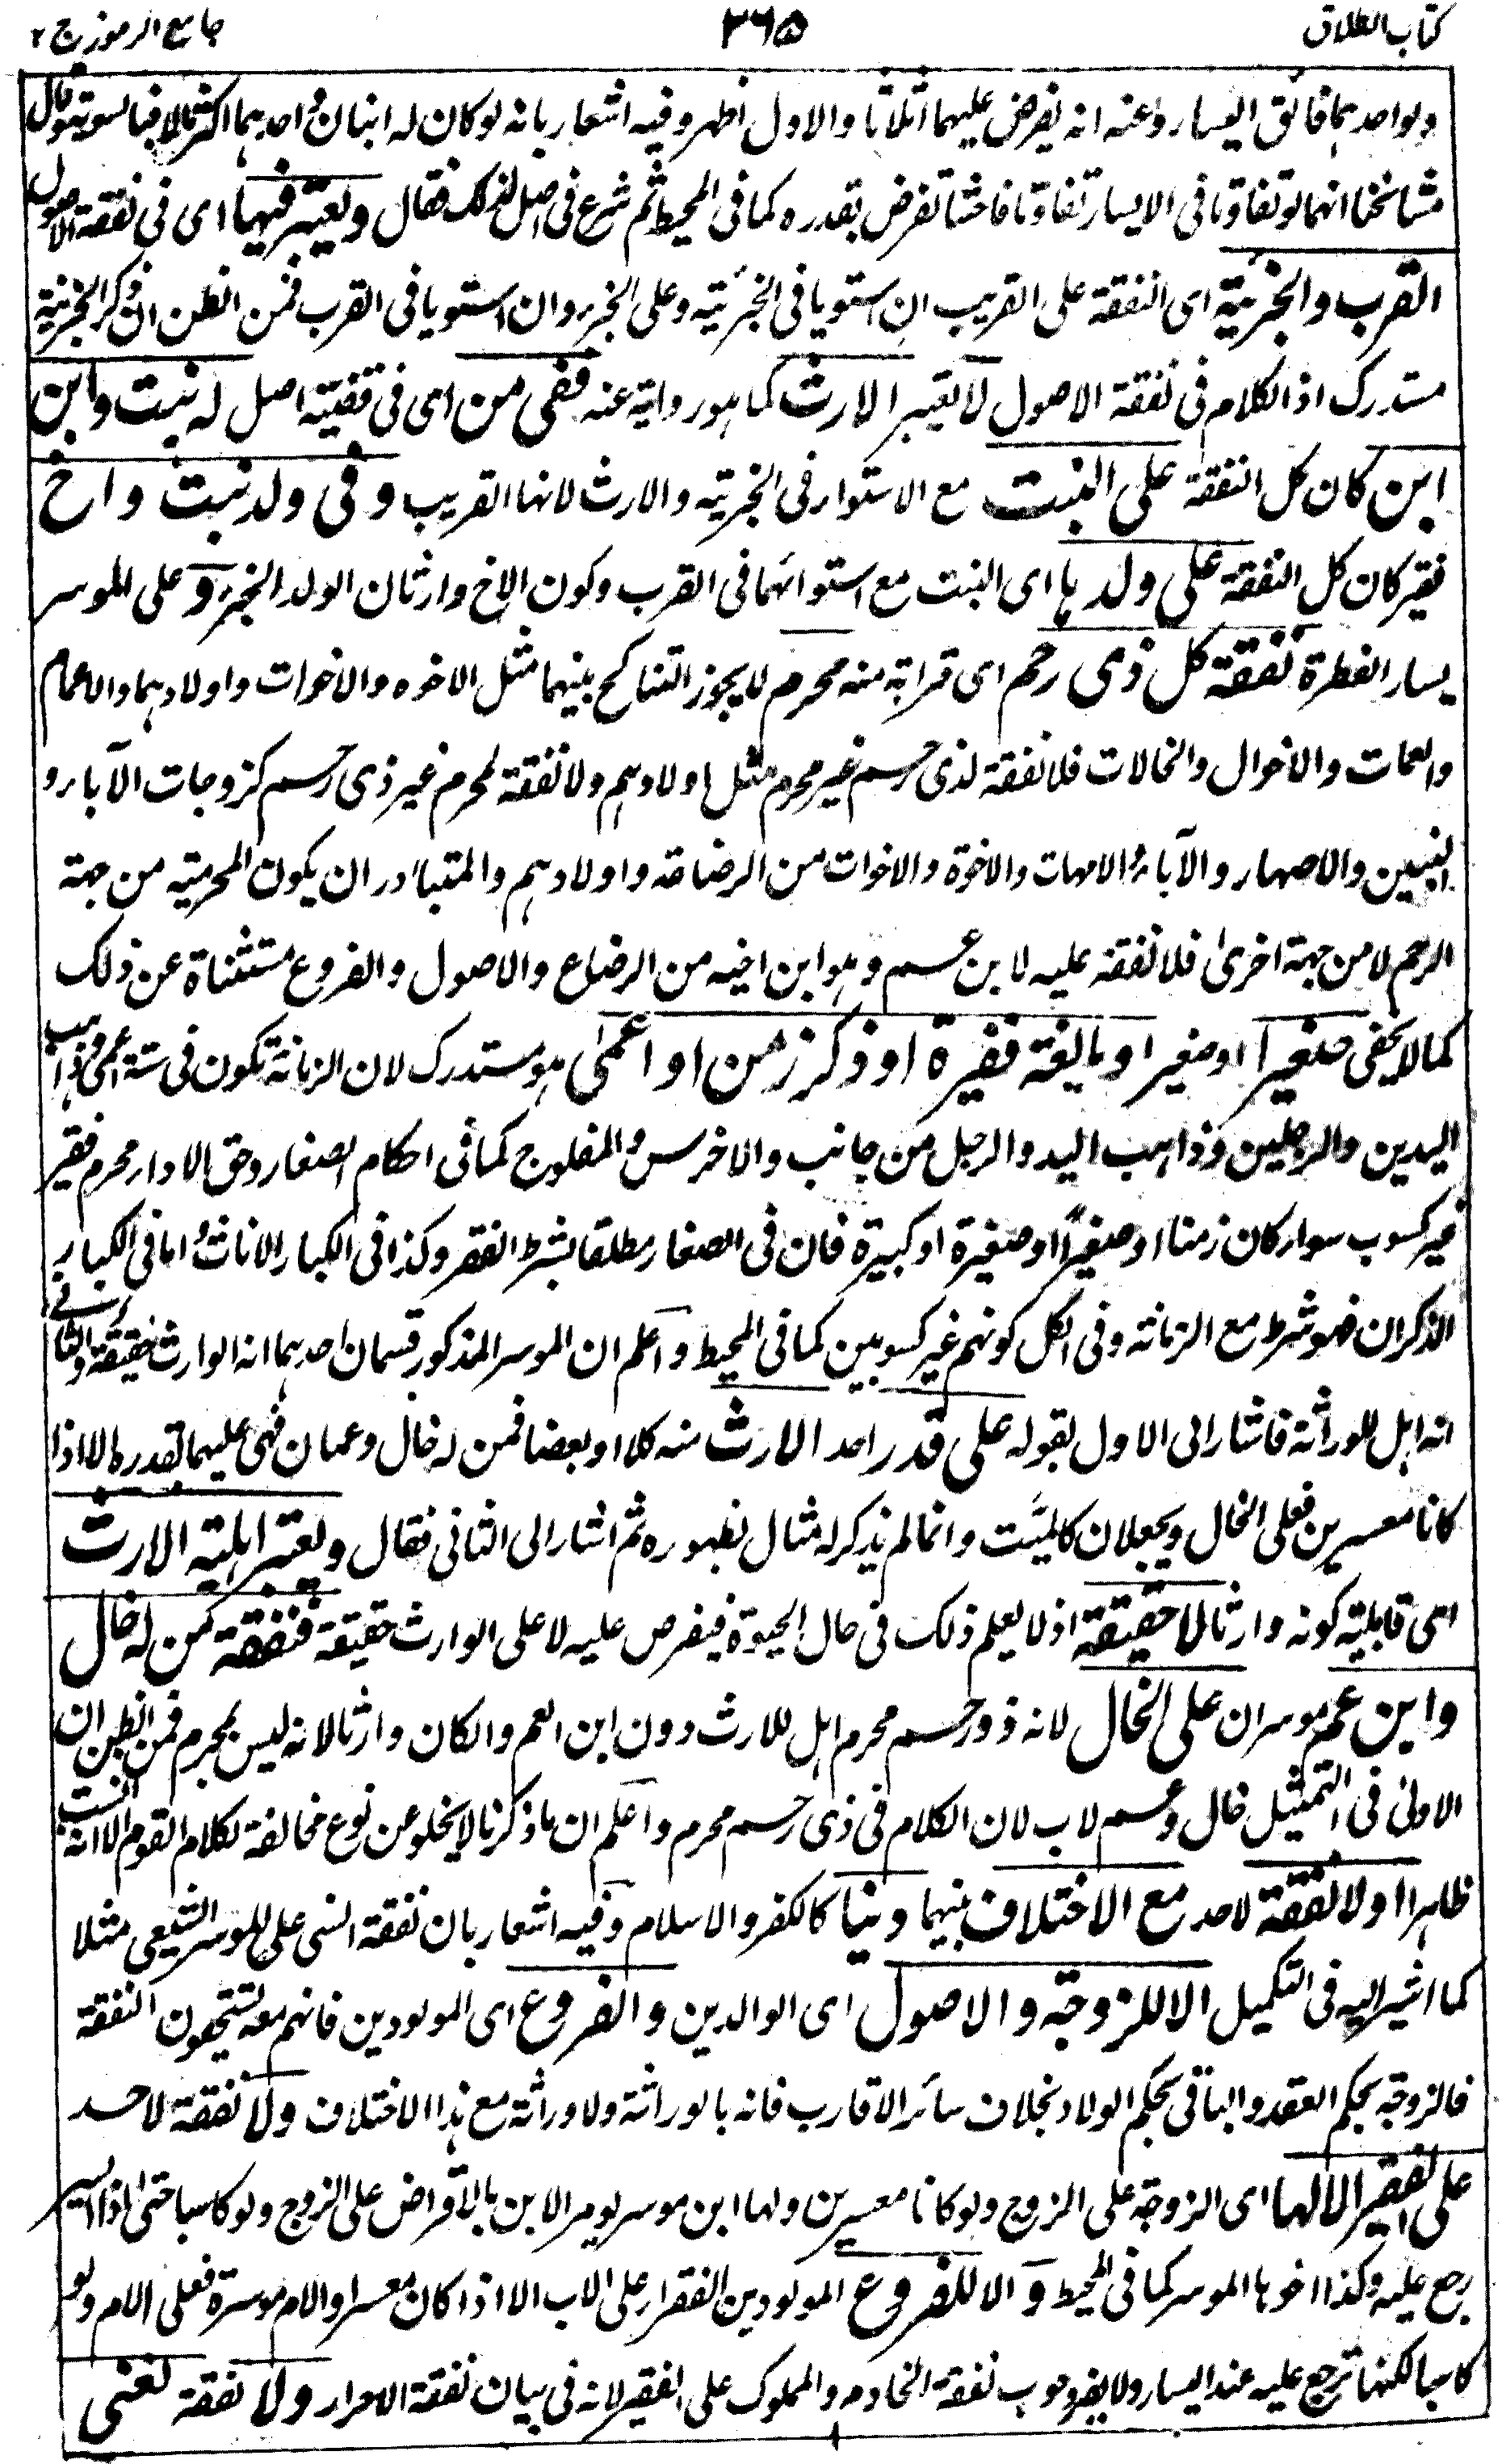 كتاب الطلاق ٣٦٥ جامع الرموز ج ٢
ولو احدهما فائق اليسار وعنه انه يفرض عليهما اثلاثا والاول اظهر وفيه اشعار بانه لو كان له ابنان واحدهما اكثر مالا فبالسوية وقال
مشائخنا انهما لو تفاوتا فى الايسار تفاوتا فاحشا تفرض بقدره كما فى المحيط ثم شرع فى اصل لذلك فقال ويعتبر فيها اى فى نفقة الاصول
القرب والجزئية اى النفقة على القريب ان استويا فى الجزئية وعلى الجزء وان استويا فى القرب فمن الظن ان ذكر الجزئية
مستدرك اذ الكلام فى نفقة الاصول لا يعتبر الارث كما هو رواية عنه ففى من اى فى قضية اصل له بنت وابن
ابن كان كل النفقة على البنت مع الاستواء فى الجزئية والارث لانها القريب وفى ولد بنت واخ
فقير كان كل النفقة على ولدها اى البنت مع استوائهما فى القرب وكون الاخ وارثا لان الولد الجزء و على الموسر
يسار الفطرة نفقة كل ذى رحم اى قرابة منه محرم لا يجوز التناكح بينهما مثل الاخوه والاخوات واولادهما والاعمام
والعمات والاخوال والخالات فلا نفقة لذى رحم غير محرم مثل اولادهم ولا نفقة لمحرم غير ذى رحم كزوجات الآباء و
البنين والاصهار والآباء والامهات والاخوة والاخوات من الرضاعة واولادهم والمتبادر ان يكون المحرمية من جهة
الرحم لا من جهة اخرى فلا نفقة عليه لابن عم وهو ابن اخيه من الرضاع والاصول والفروع مستثناة عن ذلك
كما لا يخفى صغيرا او صغيرا او بالغة فقيرة او ذكر زمن او اعمى هو مستدرك لان الزمانة تكون فى ستة اعمى وذاهب
اليدين والرجلين وذاهب اليد والرجل من جانب والاخرس والمفلوج كما فى احكام الصغار وحق الاداء محرم فقير
غير كسوب سواء كان زمنا او صغيرا او صغيرة او كبيرة فان فى الصغار مطلقا بشرط الفقر وكذا فى الكبار الاناث واما فى الكبار
الذكران فهو شرط مع الزمانة وفى الكل كونهم غير كسوبين كما فى المحيط واعلم ان الموسر المذكور قسمان احدهما انه الوارث حقيقة والثانى
انه اهل للوراثة فاشار الى الاول بقوله على قدر احد الارث منه كلا او بعضا فمن له خال وعمان فهى عليهما بقدره الا اذا
كانا معسرين فعلى الخال ويجعلان كالميت وانما لم يذكر له مثال لظهوره ثم اشار الى الثانى فقال ويعتبر اهلية الارث
اى قابلية كونه وارثا لا حقيقة اذ لا يعلم ذلك فى حال الحيوة فيفرض عليه لا على الوارث حقيقة فنفقة من له خال
وابن عم موسران على الخال لانه ذو رحم محرم اهل للارث دون ابن العم وان كان وارثا لانه ليس بمحرم فمن الظن ان
الاولى فى التمثيل خال وعم لاب لان الكلام فى ذى رحم محرم واعلم ان ما ذكرنا لا يخلو عن نوع مخالفة لكلام القوم الا انه انسب
ظاهرا ولا نفقة لاحد مع الاختلاف بينهما دينا كالكفر والاسلام وفيه اشعار بان نفقة السنى على الموسر الشيعى مثلا
كما اشير اليه فى التكميل الا للزوجة والاصول اى الوالدين والفروع اى المولودين فانهم معه يستحقون النفقة
فالزوجة بحكم العقد والباقى بحكم الولاد بخلاف سائر الاقارب فانه بالوراثة ولا وراثة مع هذا الاختلاف ولا نفقة لاحد
على الفقير الا لها اى الزوجة على الزوج ولو كانا معسرين ولها ابن موسر يومر الابن بالاقراض على الزوج ولو كاسبا حتى اذا ايسر
رجع عليه وكذا اخوها الموسر كما فى المحيط و الا للفروع المولودين الفقراء على الاب الا اذا كان معسرا والام موسرة فعلى الام ولو
كاسبا لكنها ترجع عليه عند اليسار ولا يضر وجوب نفقة الخادم والمملوك على الفقير لانه فى بيان نفقة الاحرار ولا نفقة لغنى